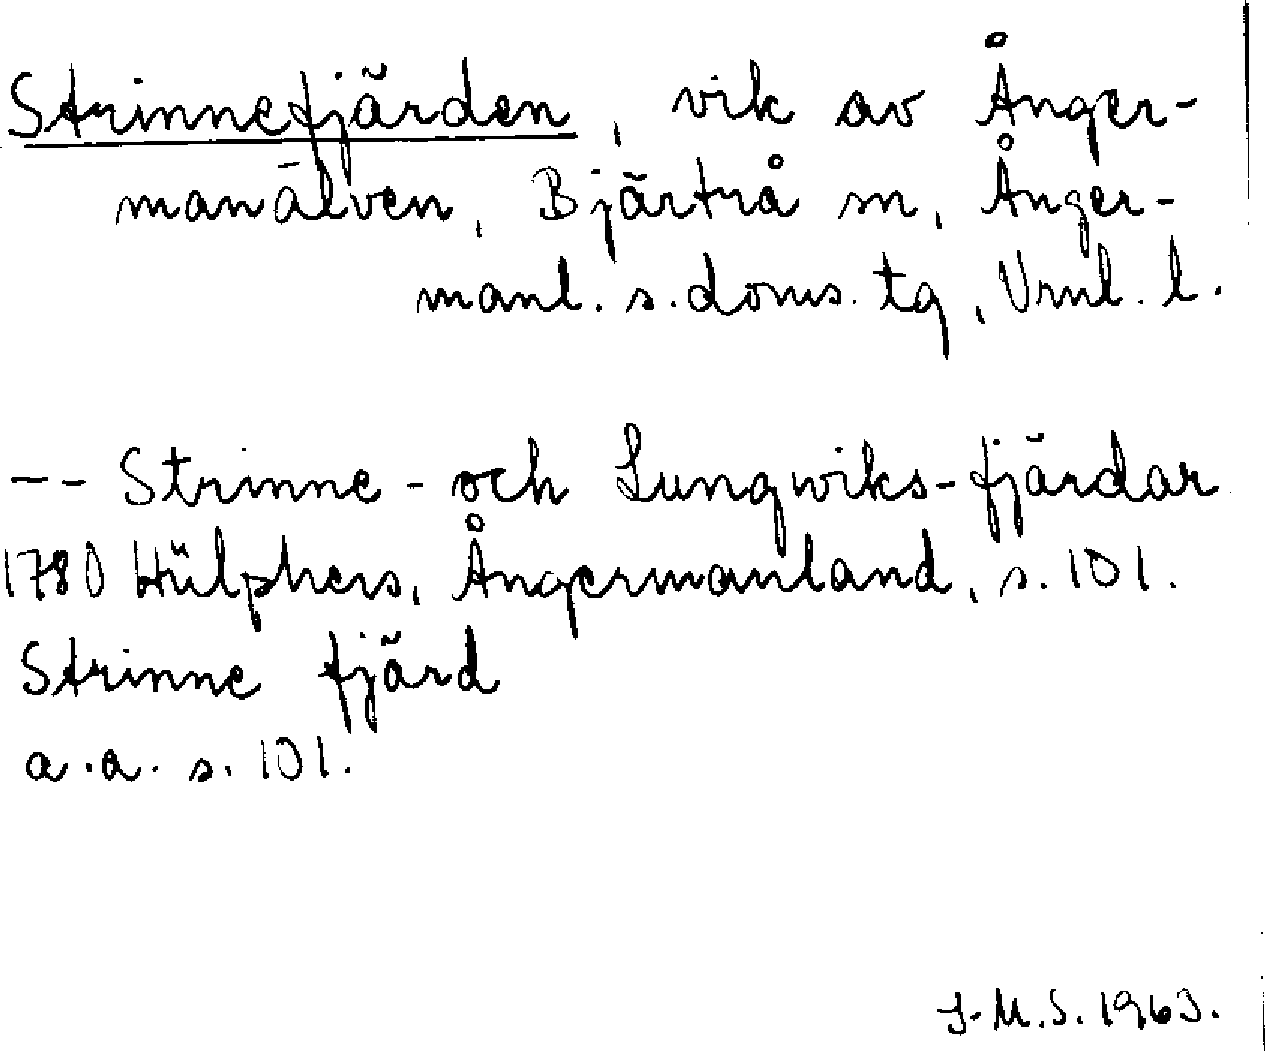 Strinnefjärden, vik av Ånger-
manälven, Bjärtrå sn, Ånger-
manl. s. doms. tg, Vrnl. l.
-- Strinne- och Lungwiks-fjärdar
1780 Hülphers, Ångermanland, s. 101.
Strinne fjärd
a.a. s. 101.
J-M.S. 1963.